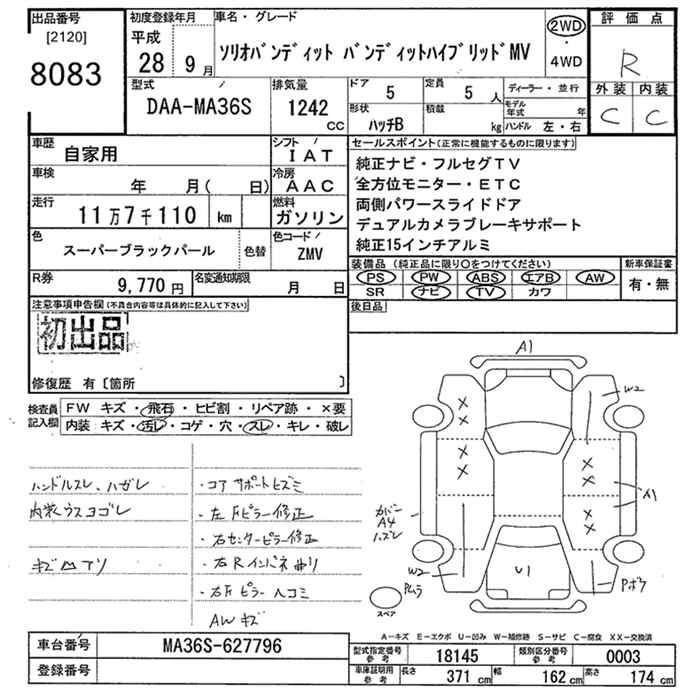 出品番号
[2120]
8083
初度登録年月
平成
28 9月
車名・グレード
ソリオバンディット バンディットハイブリッドMV
2WD
・
4WD
評価点
R
外装 内装
C C
型式
DAA-MA36S
排気量
1242
CC
ドア
5
定員
5 人
形状
ハッチB
積載
kg
ディーラー・並行
モデル年式 年
ハンドル 左・右
車歴
自家用
シフト
IAT
車検
年 月( 日)
冷房
AAC
走行
11万7千110 km
燃料
ガソリン
色
スーパーブラックパール
色替
色コード
ZMV
R券
9,770円
名変通知期限
月 日
セールスポイント(正常に機能するものに限ります)
純正ナビ・フルセグTV
全方位モニター・ETC
両側パワースライドドア
デュアルカメラブレーキサポート
純正15インチアルミ
装備品(純正品に限り○をつけてください)
PS PW ABS エアB AW
SR ナビ TV カワ
新車保証書
有・無
後日品
注意事項申告欄(不具合内容等は具体的に記入して下さい)
初出品
修復歴 有〔箇所 〕
検査員記入欄
FW キズ・飛石・ヒビ割・リペア跡・×要
内装 キズ・汚レ・コゲ・穴・スレ・キレ・破レ
ハンドルスレ、ハガレ
内装ウスヨゴレ
・コアサポートヒズミ
・左Fピラー修正
・右センターピラー修正
・右Rインパネ曲り
・右Fピラーヘコミ
AWキズ
A1
W2
A1
カバー
A4
W2
U1
Pボウ
スペア
A-キズ E-エクボ U-凹み W-補修跡 S-サビ C-腐食 XX-交換済
車台番号
MA36S-627796
登録番号
型式指定番号
参考
18145
類別区分番号
参考
0003
車庫証明用
参考
長さ
371 cm
幅
162 cm
高さ
174 cm